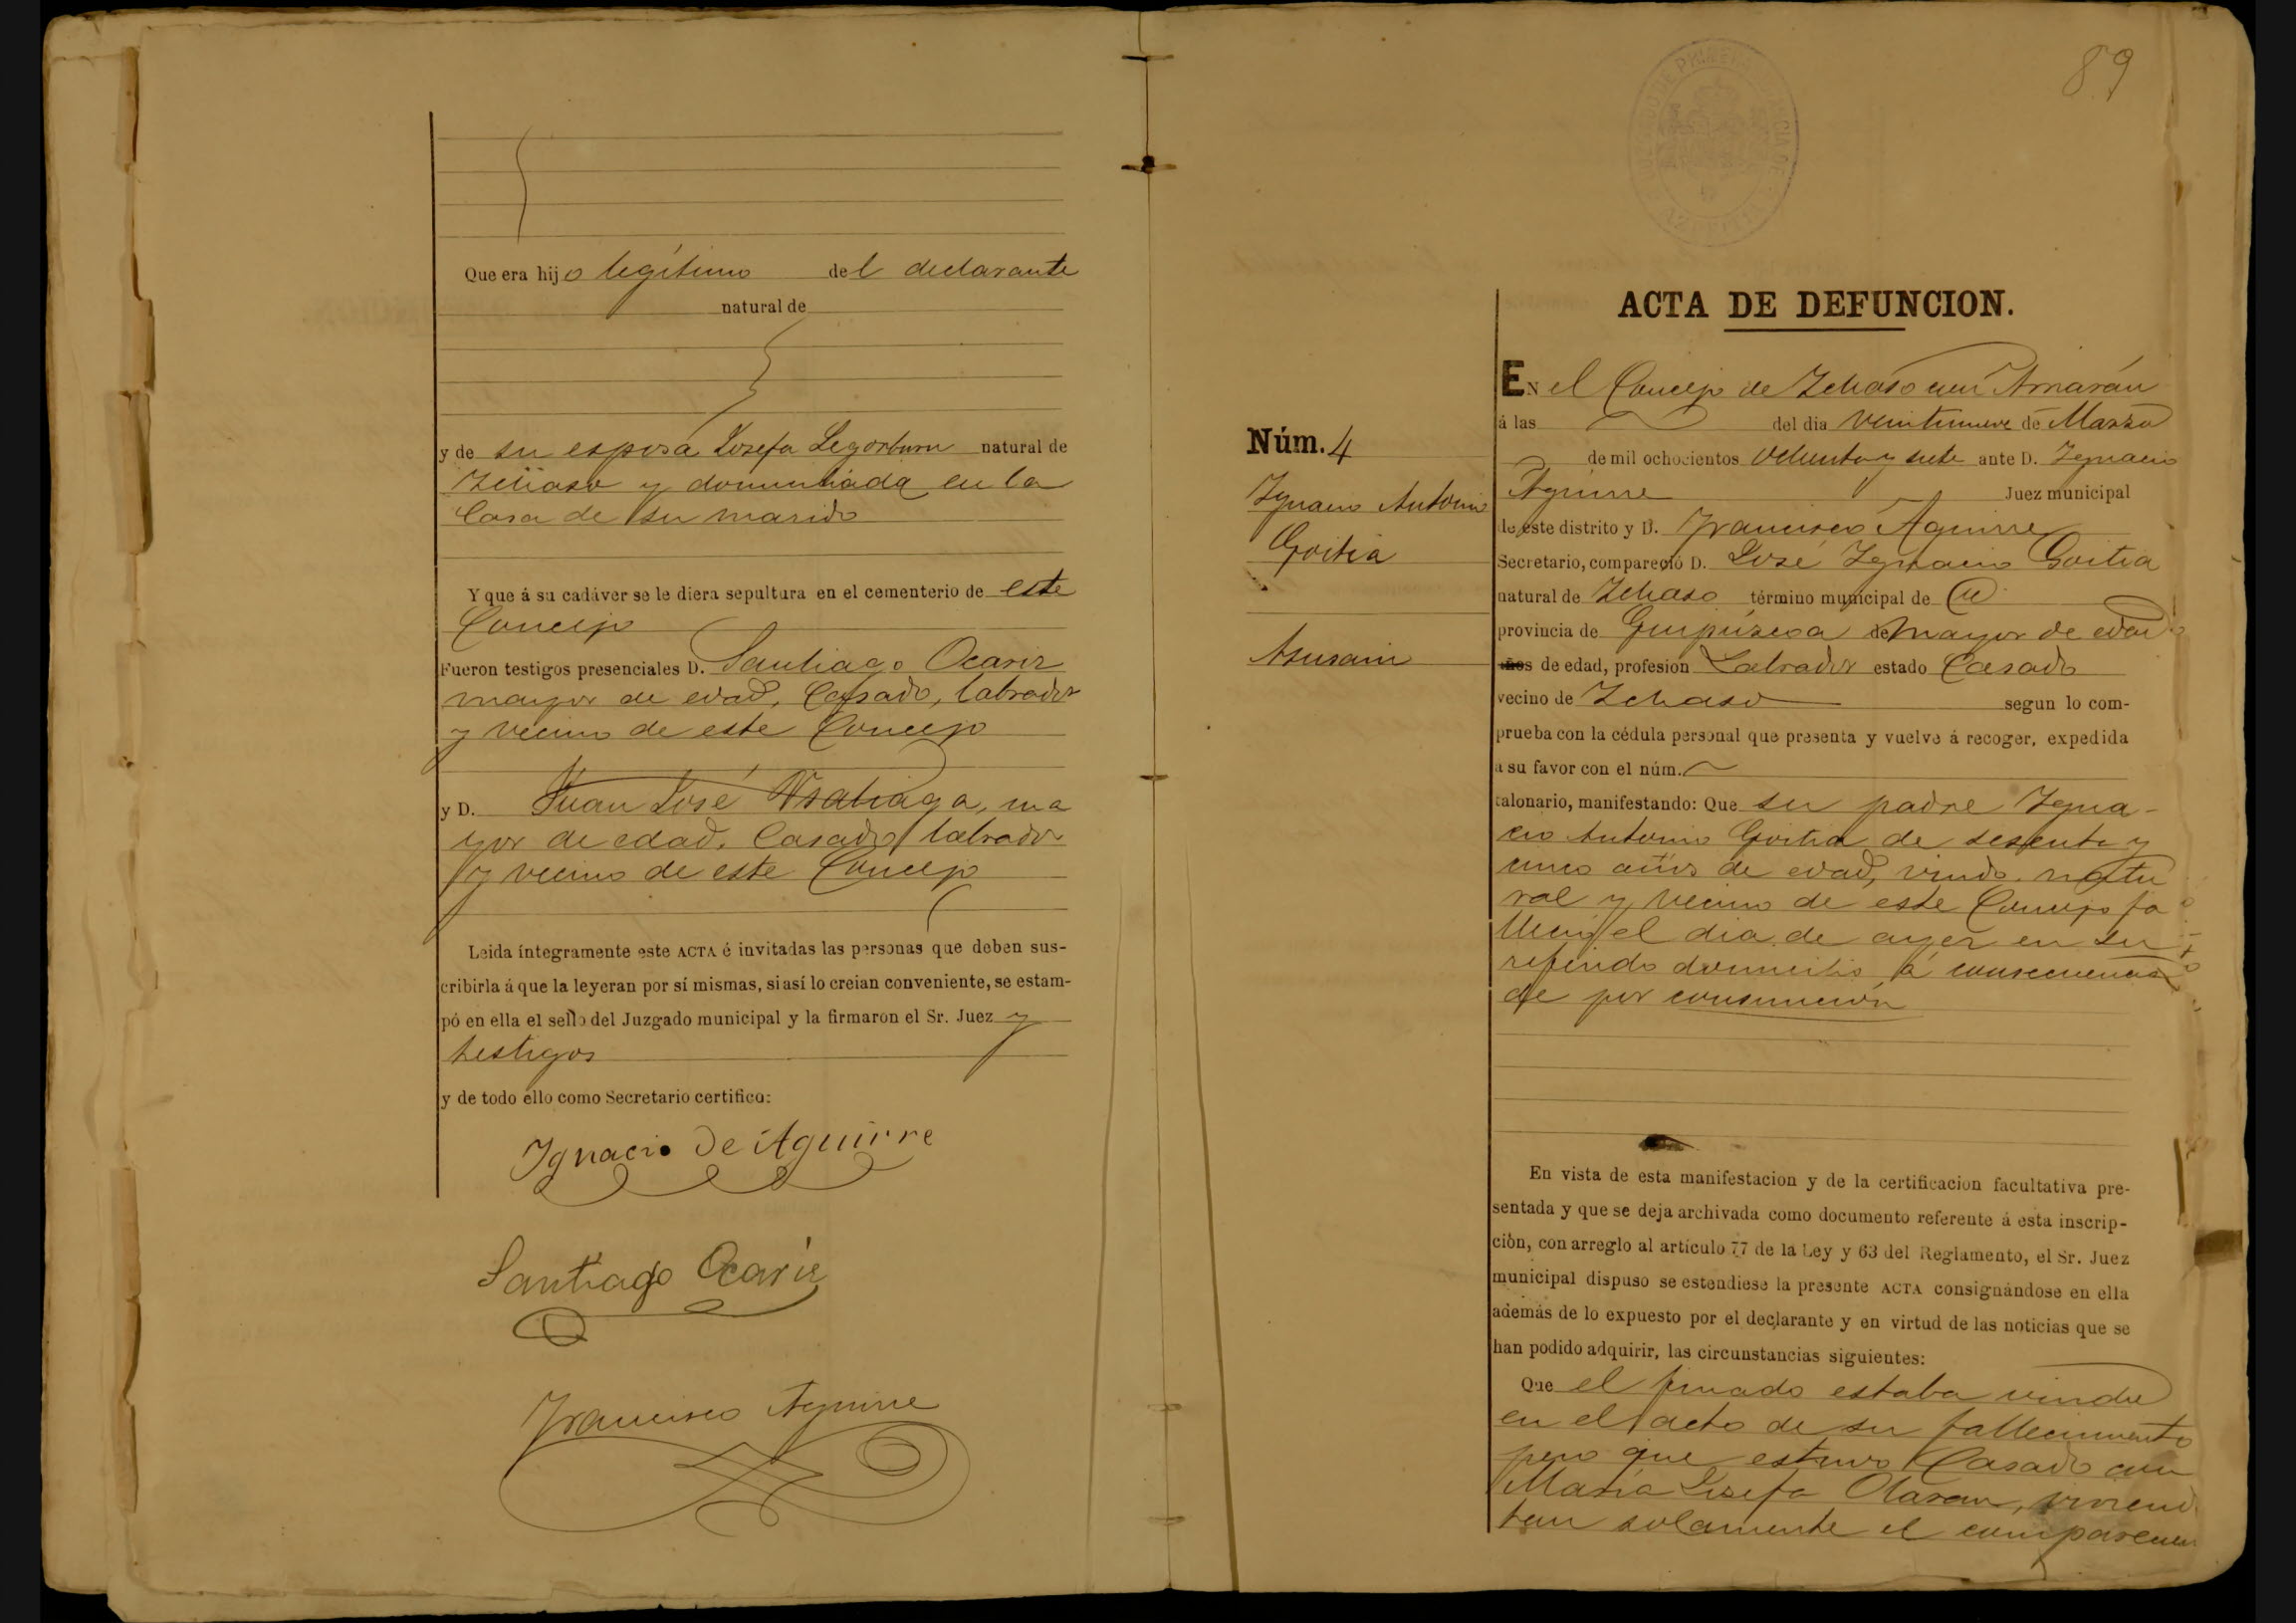 Que era hijo legítimo del declarante
natural de
y de su esposa Josefa Legorburu natural de
Ichaso y domiciliada en la
Casa de su marido
Y que á su cadáver se le diera sepultura en el cementerio de este
Concejo
Fueron testigos presenciales D. Santiago Ocariz
mayor de edad, Casado, labrador
y vecino de este Concejo
y D. Juan José Usabiaga, ma
yor de edad, Casado labrador
y vecino de este Concejo
Leida íntegramente este ACTA é invitadas las personas que deben sus-
cribirla á que la leyeran por sí mismas, si así lo creian conveniente, se estam-
pó en ella el sello del Juzgado municipal y la firmaron el Sr. Juez y
testigos
y de todo ello como Secretario certifico:
Ignacio de Aguirre
Santiago Ocariz
Francisco Aguirre
89
JUZGADO DE PRIMERA INSTANCIA DE
AZPEITIA
ACTA DE DEFUNCION.
Núm. 4
Ignacio Antonio
Goitia
EN el Concejo de Ichaso con Arriarán
á las del dia veintinueve de Marzo
de mil ochocientos ochenta y siete ante D. Ignacio
Aguirre Juez municipal
de este distrito y D. Francisco Aguirre
Secretario, compareció D. José Ignacio Goitia
natural de Ichaso término municipal de
provincia de Guipúzcoa de mayor de edad
años de edad, profesion Labrador estado Casado
vecino de Ichaso segun lo com-
prueba con la cédula personal que presenta y vuelve á recoger, expedida
a su favor con el núm.
talonario, manifestando: Que su padre Igna-
cio Antonio Goitia de sesenta y
cinco años de edad, viudo natu
ral y vecino de este Concejo fa
lleció el dia de ayer en su
referido domicilio á consecuencia
de por consunción
En vista de esta manifestacion y de la certificacion facultativa pre-
sentada y que se deja archivada como documento referente á esta inscrip-
ción, con arreglo al artículo 77 de la Ley y 63 del Reglamento, el Sr. Juez
municipal dispuso se estendiese la presente ACTA consignándose en ella
además de lo expuesto por el declarante y en virtud de las noticias que se
han podido adquirir, las circunstancias siguientes:
Que el finado estaba viudo
en el acto de su fallecimiento
pero que estuvo Casado con
María Josefa Olaran, viviend
solamente el comparecien